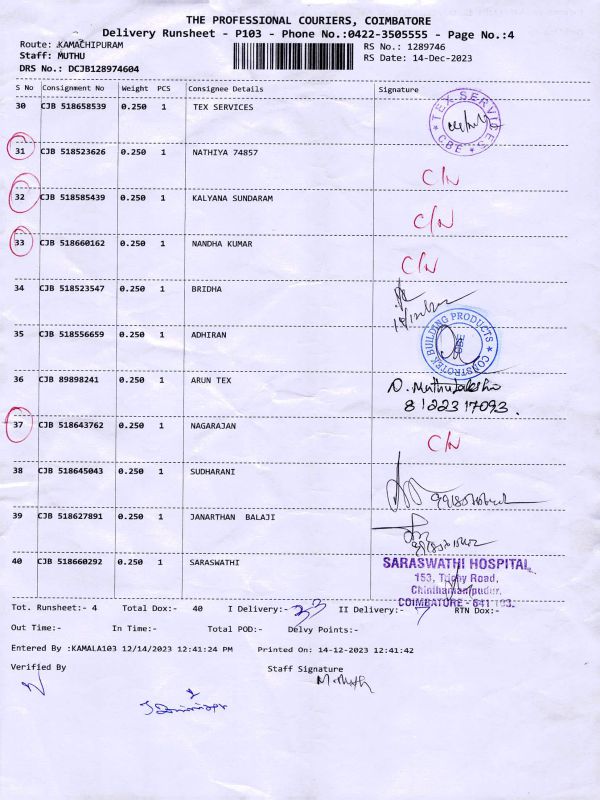 THE PROFESSIONAL COURIERS, COIMBATORE
Delivery Runsheet - P103 - Phone No.:0422-3505555 - Page No.:4
Route: KAMACHIPURAM
RS No.: 1289746
Staff: MUTHU
RS Date: 14-Dec-2023
DRS No.: DCJB128974604
S No Consignment No Weight PCS Consignee Details Signature
30 CJB 518658539 0.250 1 TEX SERVICES
TEX SERVICES
CBE
31 CJB 518523626 0.250 1 NATHIYA 74857
C/N
32 CJB 518585439 0.250 1 KALYANA SUNDARAM
C/N
33 CJB 518660162 0.250 1 NANDHA KUMAR
C/N
34 CJB 518523547 0.250 1 BRIDHA
35 CJB 518556659 0.250 1 ADHIRAN
CONSTROTEX BUILDING PRODUCTS
36 CJB 89898241 0.250 1 ARUN TEX
8122317093.
37 CJB 518643762 0.250 1 NAGARAJAN
C/N
38 CJB 518645043 0.250 1 SUDHARANI
39 CJB 518627891 0.250 1 JANARTHAN BALAJI
40 CJB 518660292 0.250 1 SARASWATHI
SARASWATHI HOSPITAL
153, Trichy Road,
Chinthamanipudur,
COIMBATORE - 641 103.
Tot. Runsheet:- 4 Total Dox:- 40 I Delivery:- 33 II Delivery:- 7 RTN Dox:-
Out Time:- In Time:- Total POD:- Delvy Points:-
Entered By :KAMALA103 12/14/2023 12:41:24 PM Printed On: 14-12-2023 12:41:42
Verified By Staff Signature